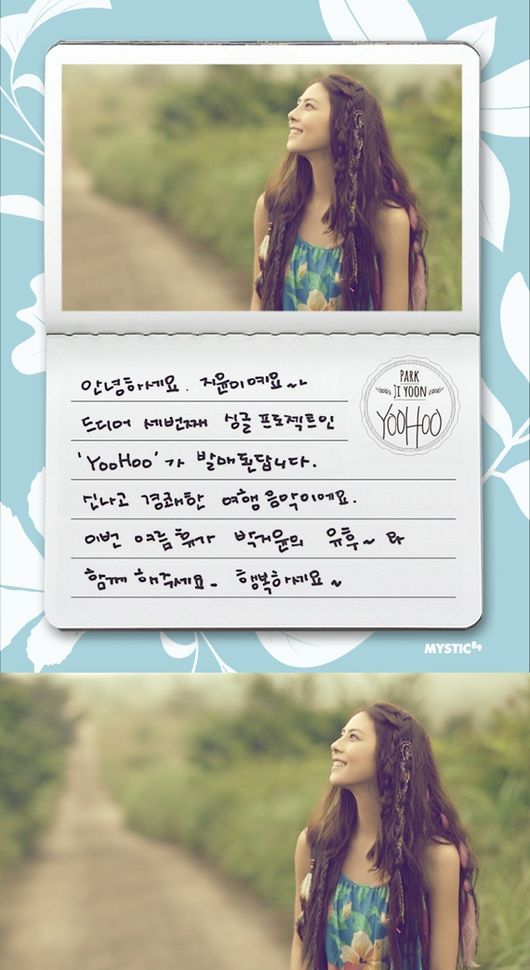 안녕하세요. 지윤이예요~
드디어 세번째 싱글 프로젝트인
'YooHoo'가 발매된답니다.
신나고 경쾌한 여행 음악이에요.
이번 여름 휴가 박지윤의 유후~ 와
함께 해주세요. 행복하세요~
PARK
JI YOON
YOOHOO
MYSTIC89